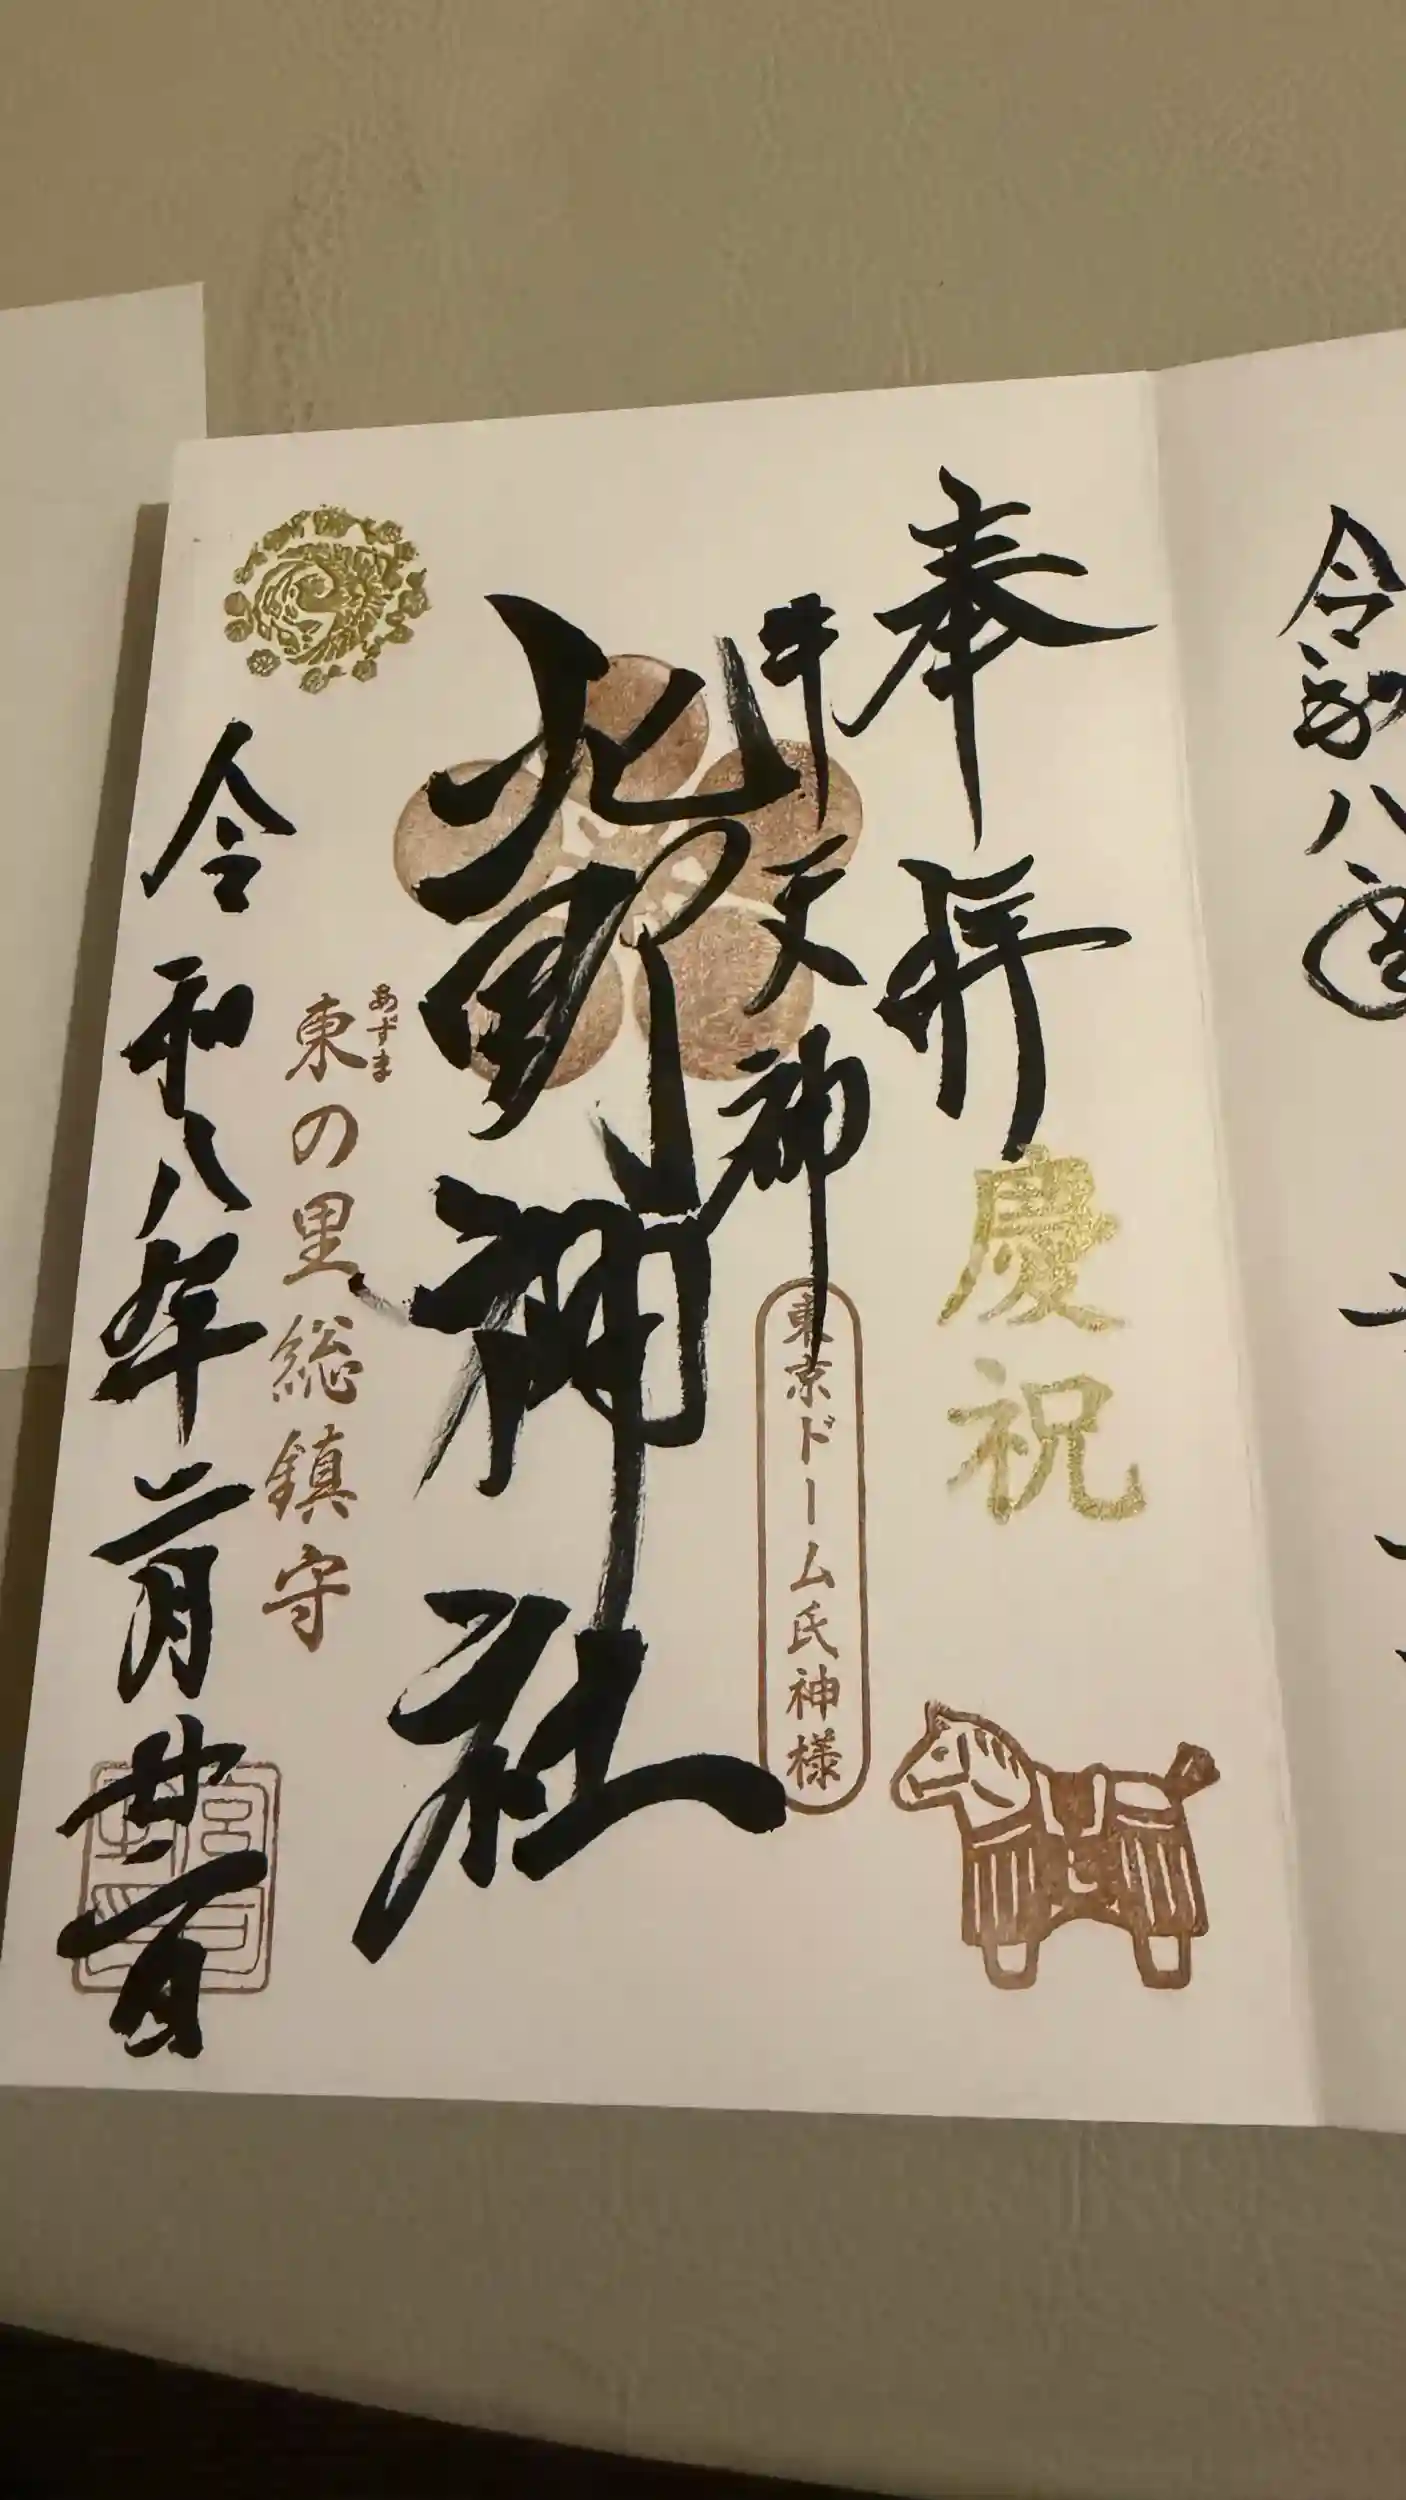 奉拝
慶祝
牛天神
東京ドーム氏神様
北野神社
あずま
東の里総鎮守
令和八年二月廿一日
宮司
令和八